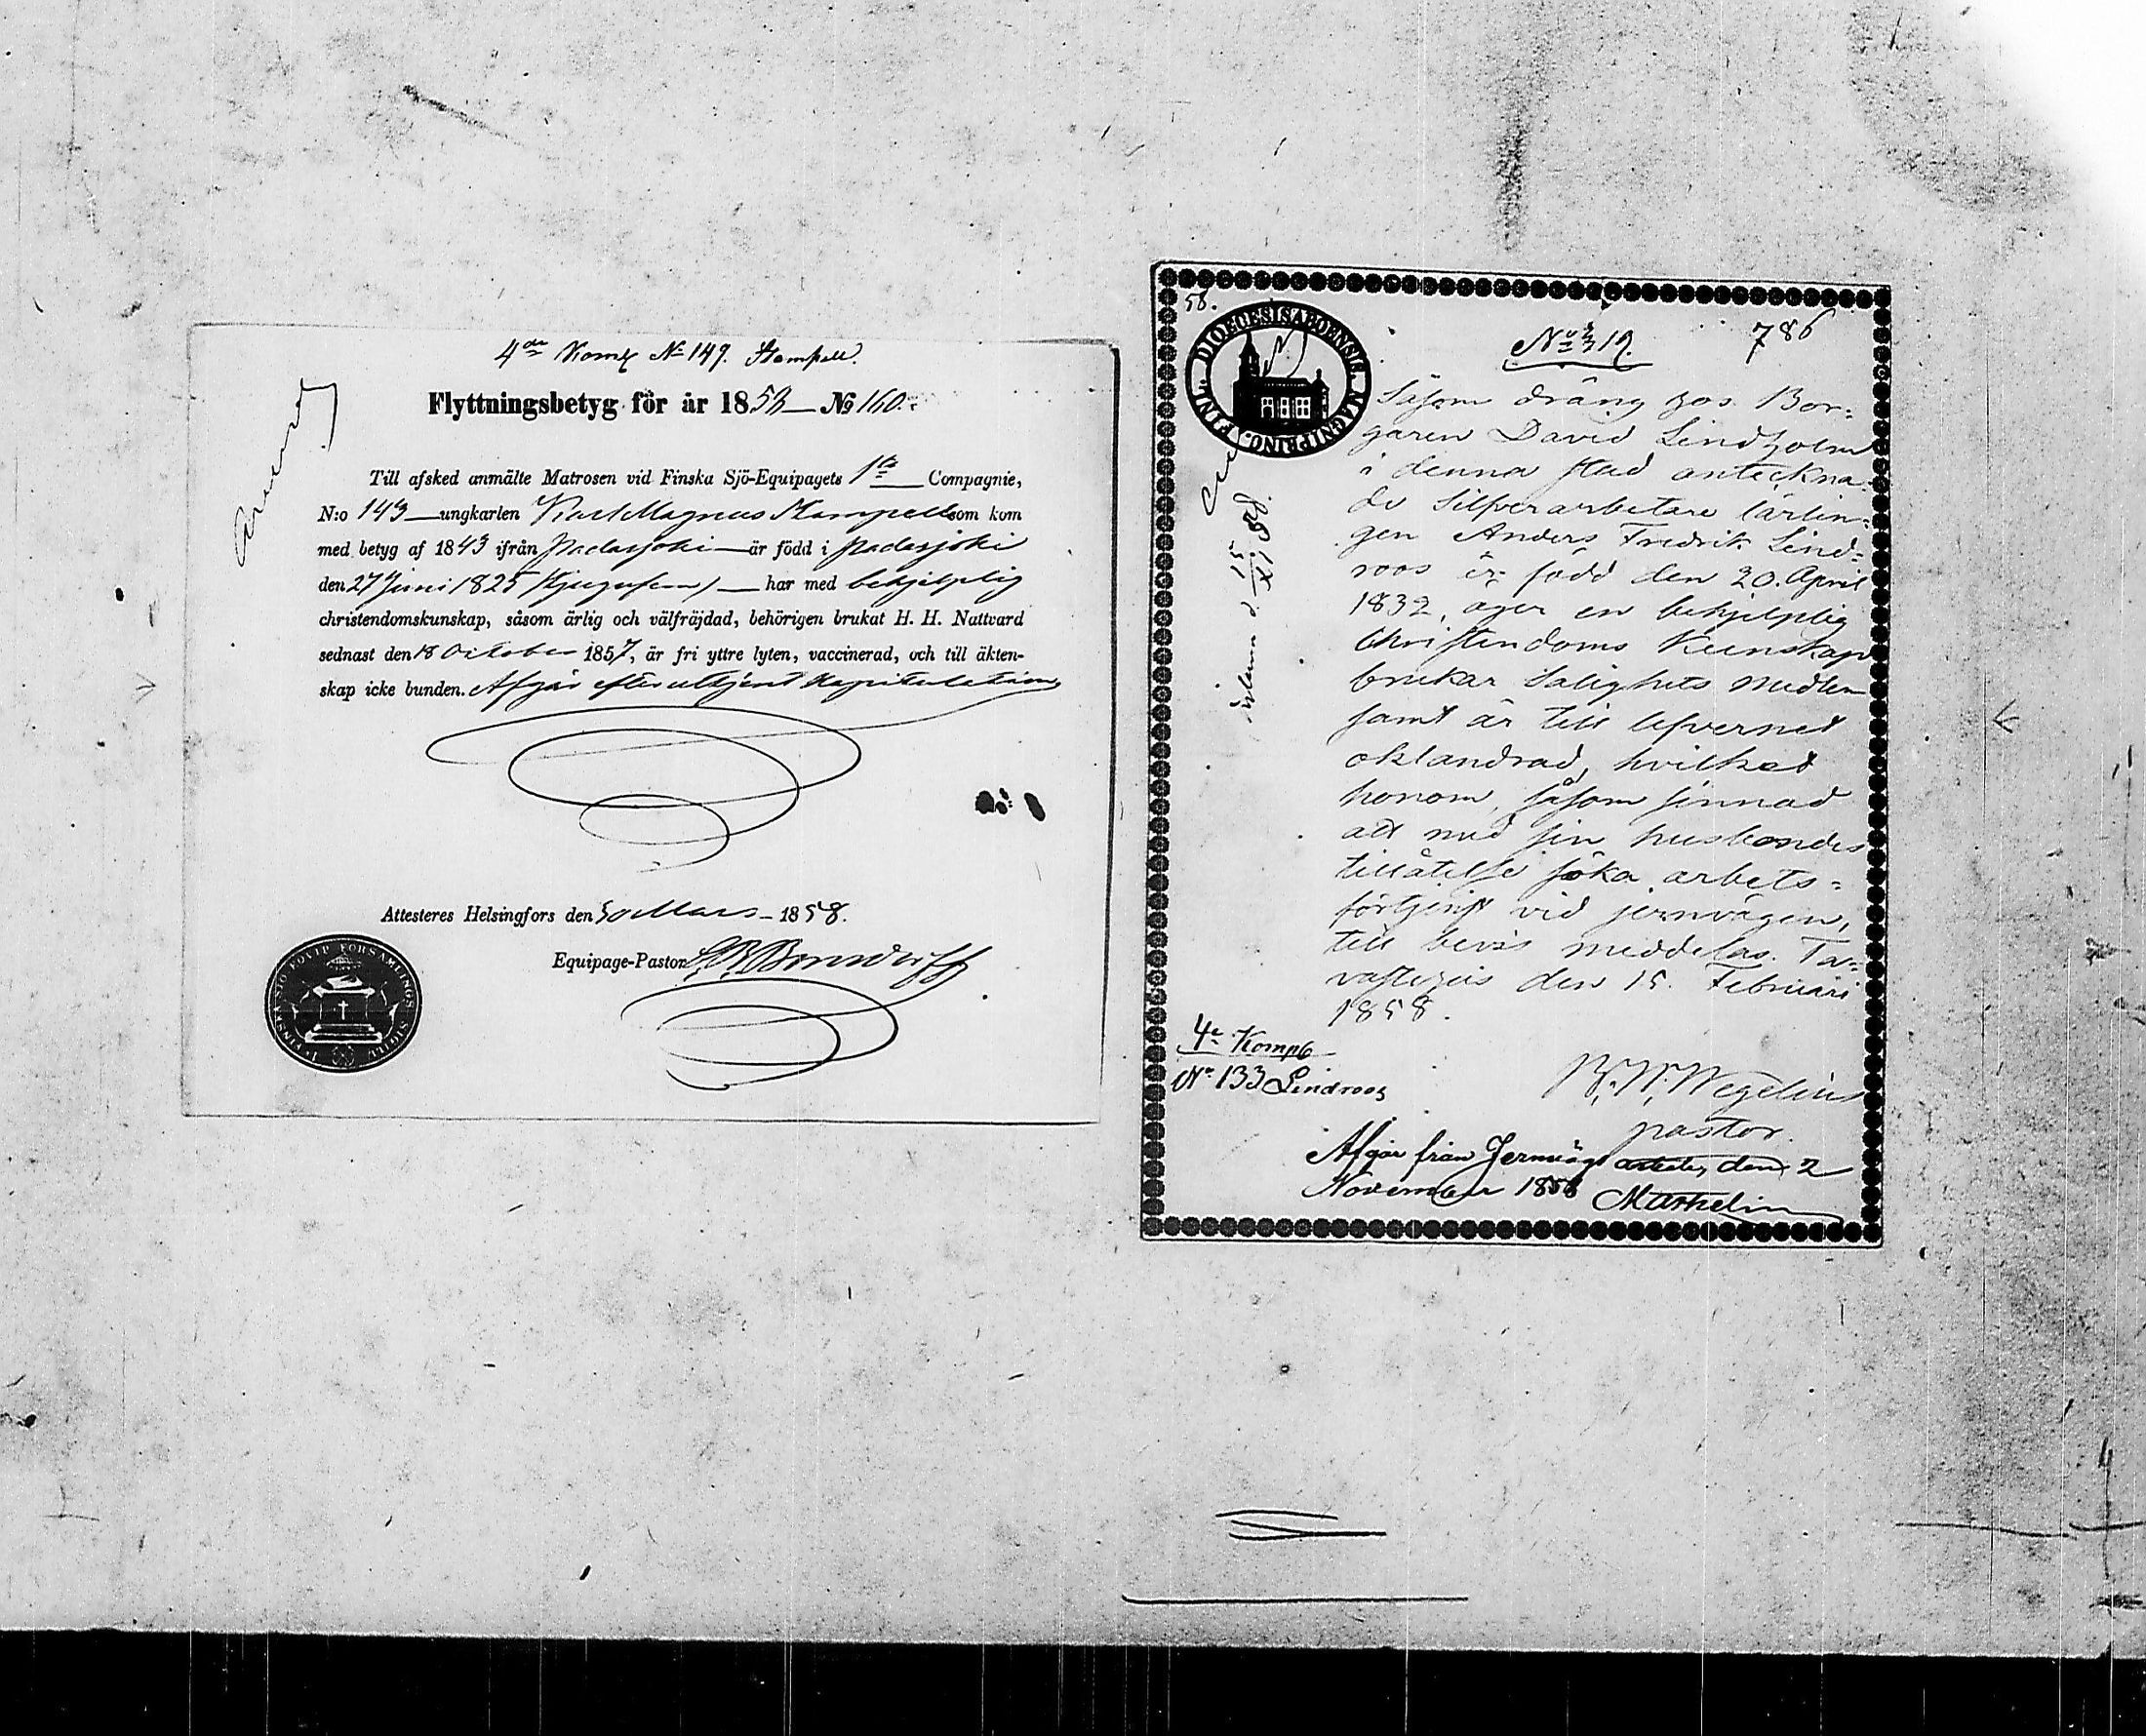 4de Komp № 149. Stampell.
Flyttningsbetyg för år 1858 № 160.
Till afsked anmälte Matrosen vid Finska Sjö-Equipagets 1sta Compagnie,
N:o 143 ungkarlen Karl Magnus Stampell som kom
med betyg af 1843 ifrån Padasjoki är född i Padasjoki
den 27 Juni 1825 (tjugufem) har med behjelplig
christendomskunskap, såsom ärlig och välfräjdad, behörigen brukat H. H. Nattvard
sednast den 18 October 1857, är fri yttre lyten, vaccinerad, och till äkten-
skap icke bunden. Afgår efter uttjent Kapitulation
Attesteres Helsingfors den 30 Mars 1858.
Equipage-Pastor
58.
DIOECESIS ABOENSIS. MAGNI PRINC. FINL.
№ 219.
786
Såsom dräng hos Bor=
garen David Lindholm
i denna stad anteckna=
de Silfverarbetare lärlin=
gen Anders Fredrik Lind=
roos är född den 20. April
1832, äger en behjelplig
Christendoms Kunskap
brukar Salighets medlen
samt är till lefvernet
oklandrad, hvilket
honom, såsom sinnad
att med sin husbondes
tillåtelse söka arbets=
förtjenst vid jernvägen,
till bevis meddelas. Ta=
vastehus den 15. Februari
1858.
4e Komp
№ 133 Lindroos
Wegelius
pastor.
Afgår från Jernvägs arbete, den 2
November 1858